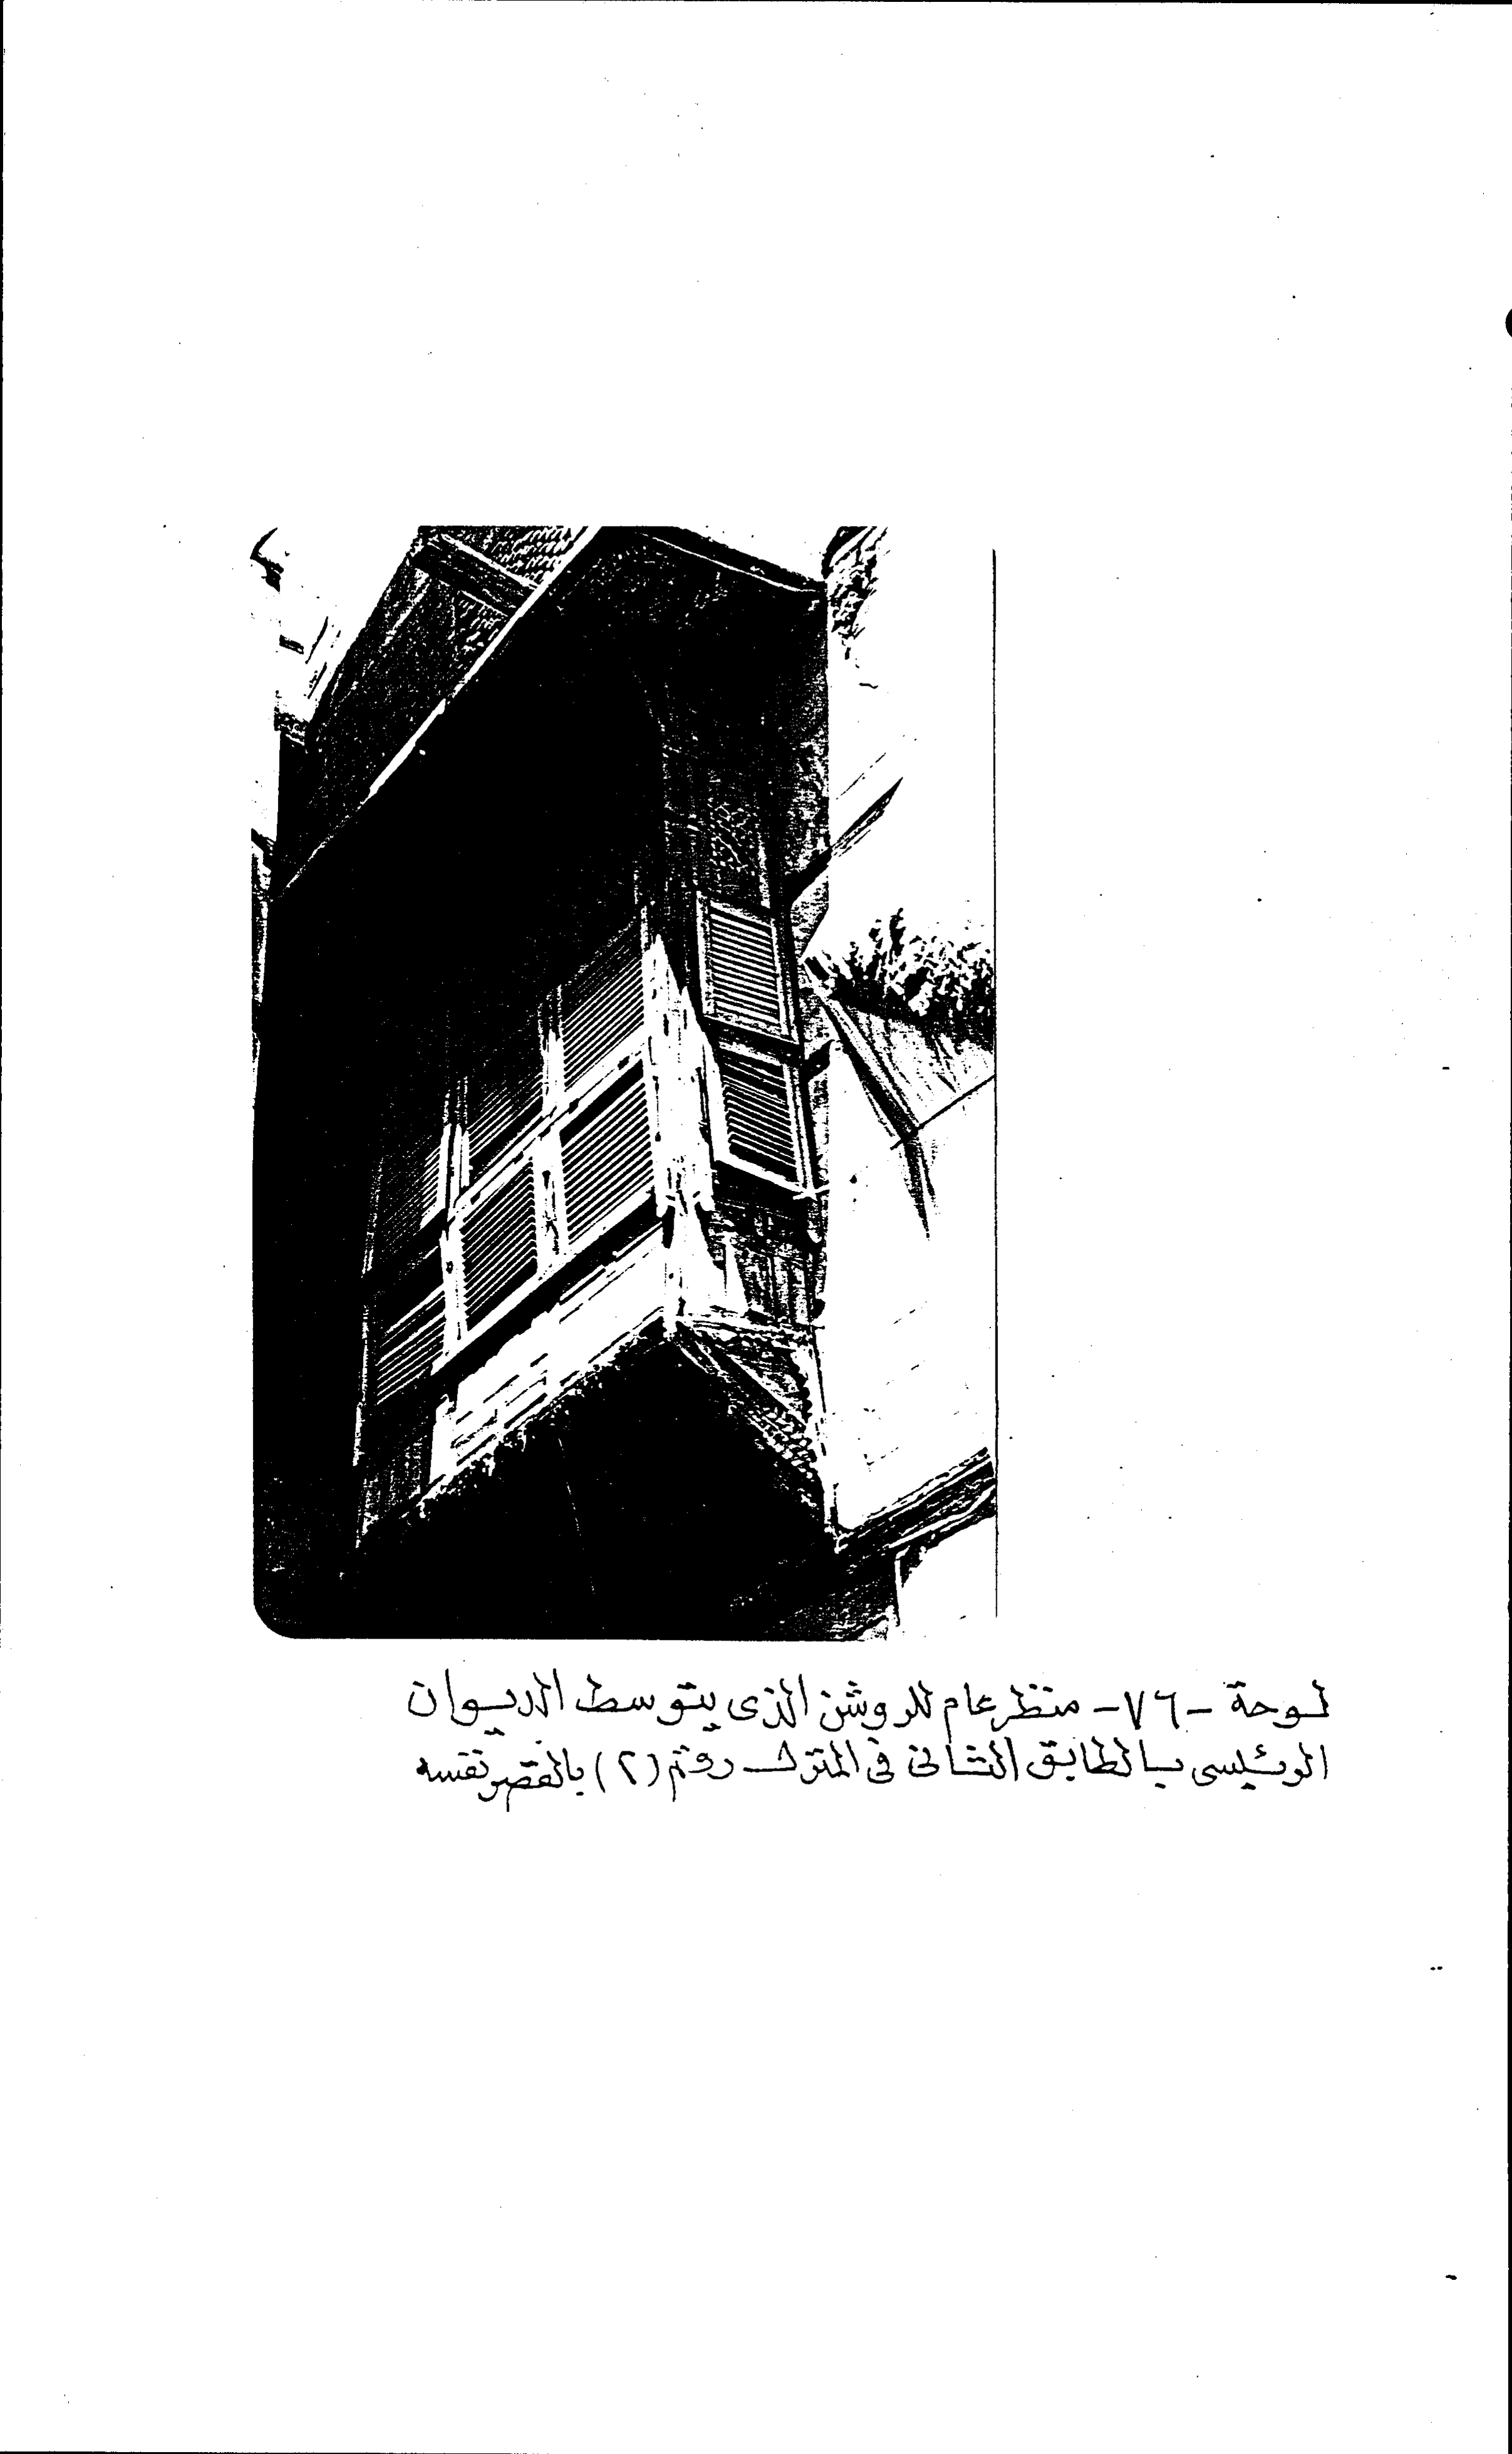 لوحة -٧٦- منظر عام للروشن الذى يتوسط الديوان
الرئيسى بالطابق الثانى فى المنزل رقم (٢) بالقصر نفسه